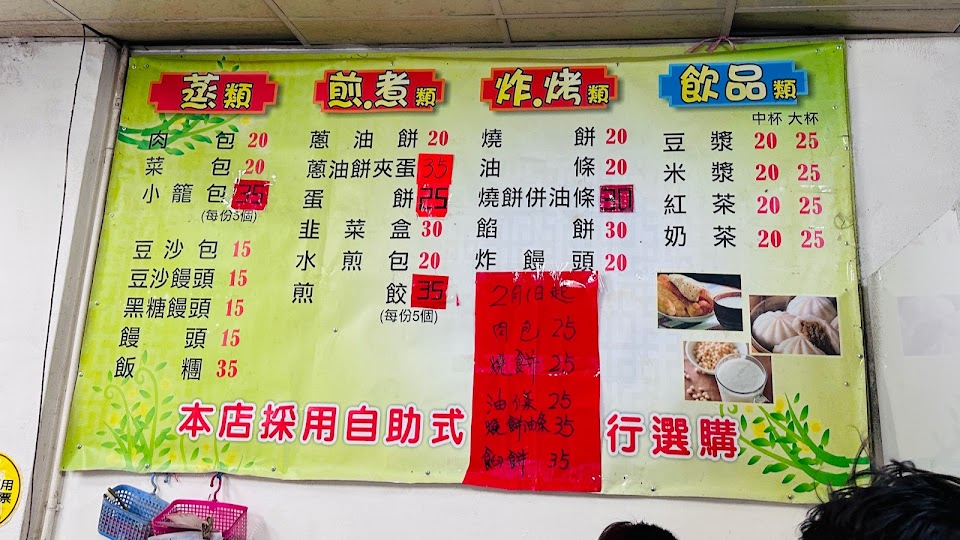 蒸類
肉包 20
菜包 20
小籠包 35
(每份5個)
豆沙包 15
豆沙饅頭 15
黑糖饅頭 15
饅頭 15
飯糰 35
煎.煮類
蔥油餅 20
蔥油餅夾蛋 35
蛋餅 25
韭菜盒 30
水煎包 20
煎餃 35
(每份5個)
炸.烤類
燒餅 20
油條 20
燒餅併油條 30
餡餅 30
炸饅頭 20
飲品類
中杯 大杯
豆漿 20 25
米漿 20 25
紅茶 20 25
奶茶 20 25
2月1日起
肉包 25
燒餅 25
油條 25
燒餅油條 35
餡餅 35
本店採用自助式
行選購
用
票